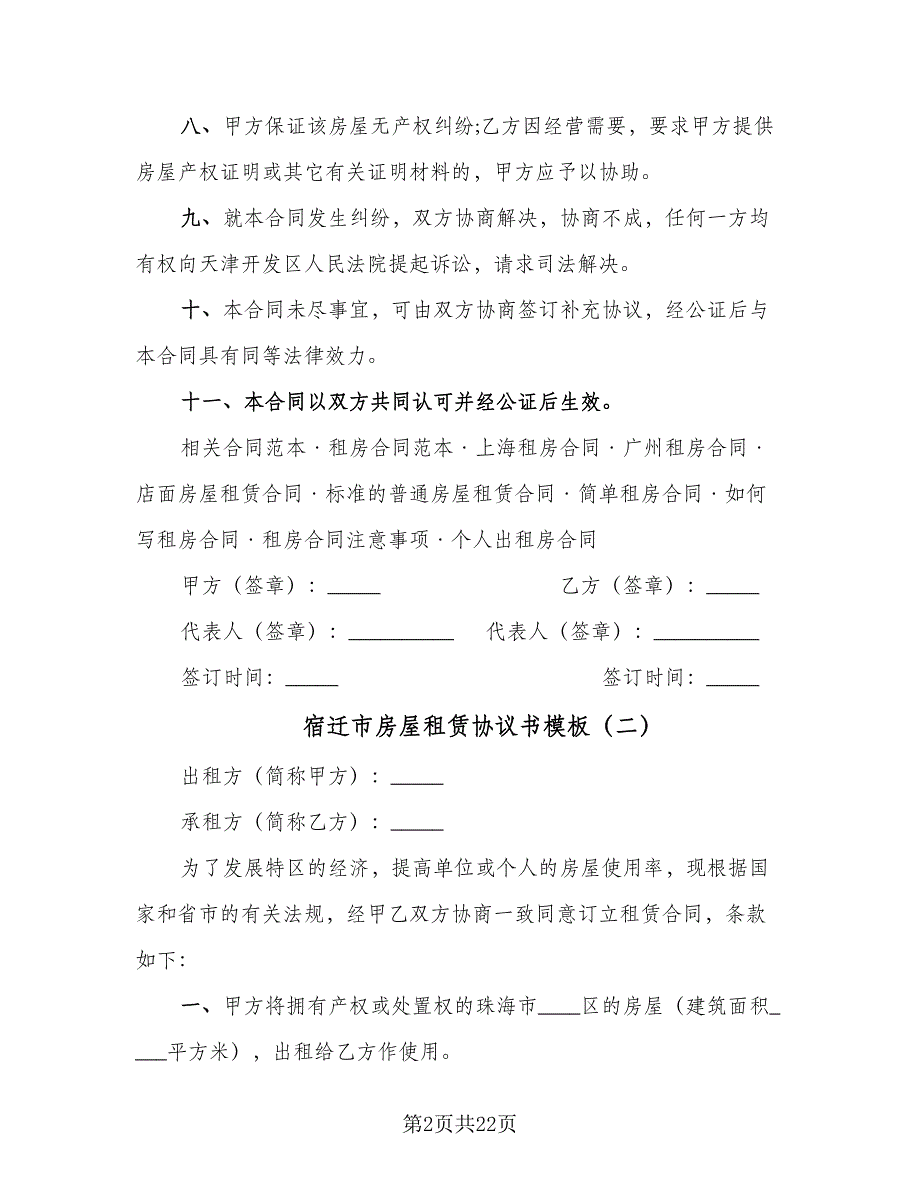 八、甲方保证该房屋无产权纠纷;乙方因经营需要，要求甲方提供
房屋产权证明或其它有关证明材料的，甲方应予以协助。
九、就本合同发生纠纷，双方协商解决，协商不成，任何一方均
有权向天津开发区人民法院提起诉讼，请求司法解决。
十、本合同未尽事宜，可由双方协商签订补充协议，经公证后与
本合同具有同等法律效力。
十一、本合同以双方共同认可并经公证后生效。
相关合同范本·租房合同范本·上海租房合同·广州租房合同·
店面房屋租赁合同·标准的普通房屋租赁合同·简单租房合同·如何
写租房合同·租房合同注意事项·个人出租房合同
甲方（签章）：_____ 乙方（签章）：_____
代表人（签章）：__________ 代表人（签章）：__________
签订时间：_____ 签订时间：_____
宿迁市房屋租赁协议书模板（二）
出租方（简称甲方）：_____
承租方（简称乙方）：_____
为了发展特区的经济，提高单位或个人的房屋使用率，现根据国
家和省市的有关法规，经甲乙双方协商一致同意订立租赁合同，条款
如下：
一、甲方将拥有产权或处置权的珠海市____区的房屋（建筑面积_
___平方米），出租给乙方作使用。
第2页共22页